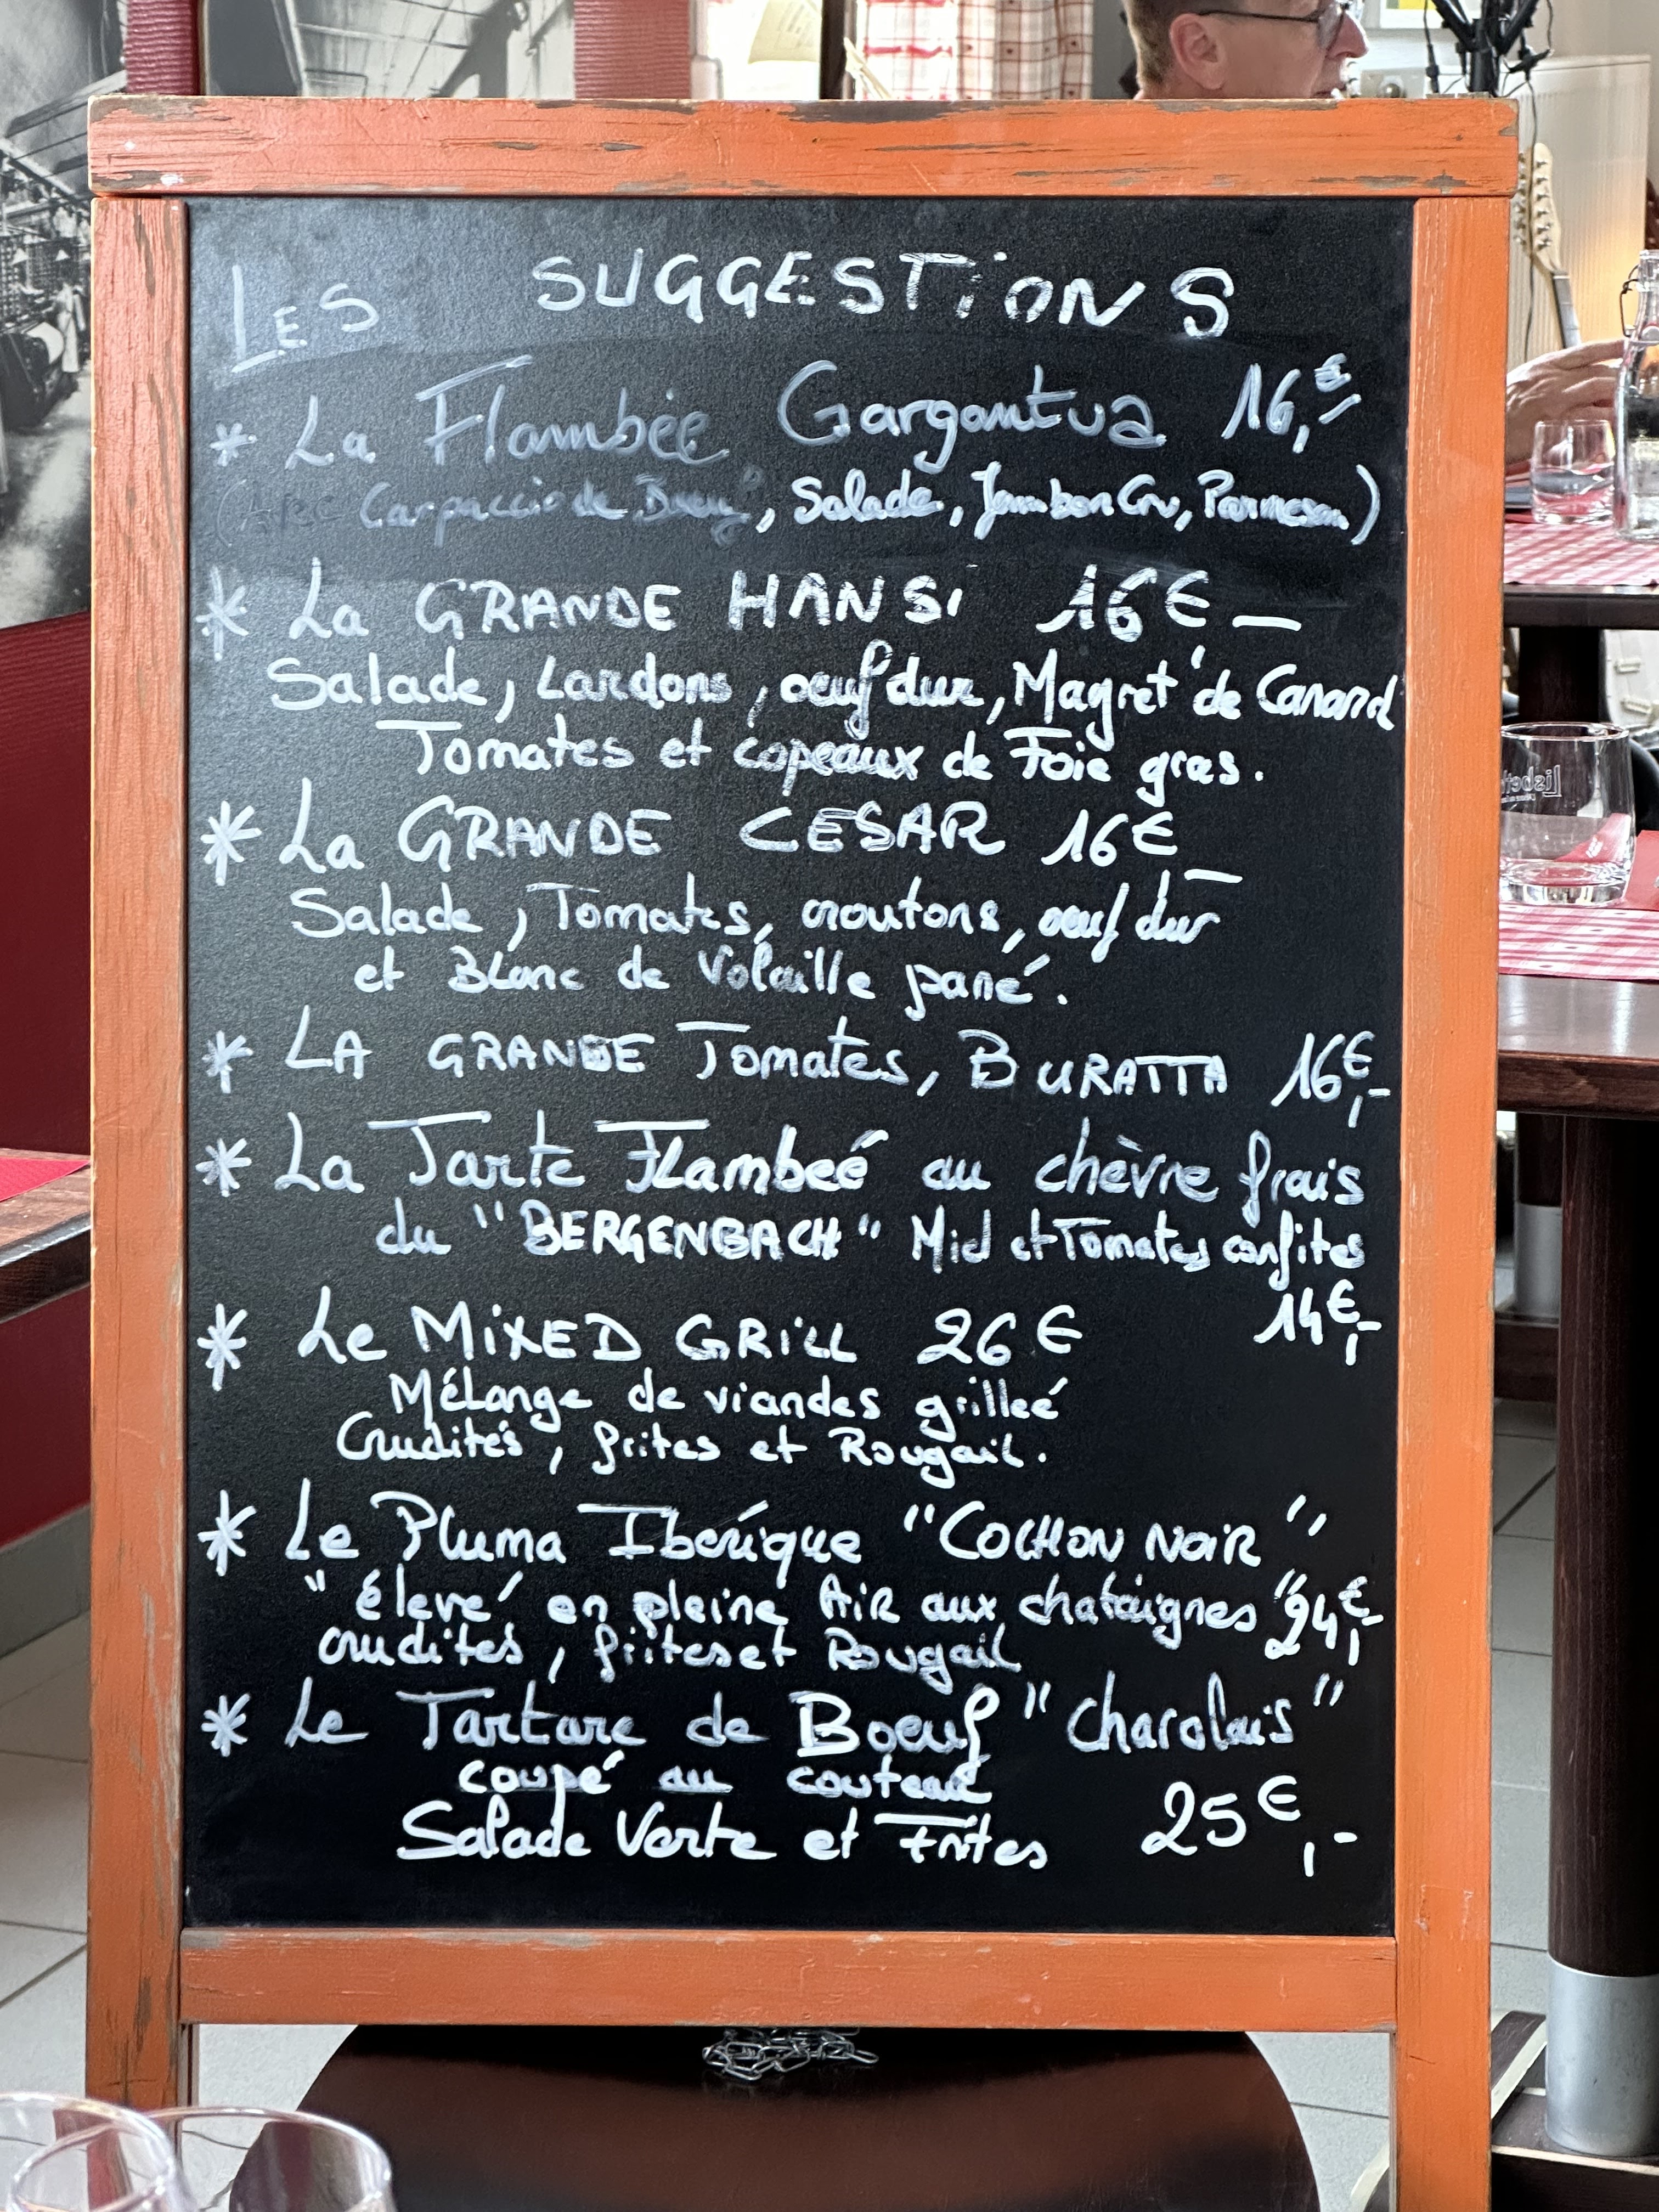 LES SUGGESTiONS
* La Flambée Gargantua 16,€
(Avec Carpaccio de Bœuf, Salade, Jambon Cru, Parmesan)
* La GRANDE HANSi 16€ –
Salade, Lardons, oeuf dur, Magret de Canard
Tomates et copeaux de Foie gras.
* La GRANDE CESAR 16€ –
Salade, Tomates, croutons, oeuf dur
et Blanc de Volaille pané.
* LA GRANDE Tomates, BURATTA 16€,-
* La Tarte Flambeé au chèvre frais
du "BERGENBACH" Miel et Tomates confites
14€,-
* Le MiXED GRiLL 26€
Mélange de viandes grilleé
Crudités, frites et Rougail.
* Le Pluma Ibérique "COCHON NOiR"
"élevé en pleine AiR aux chataignes" 24€,-
crudités, frites et Rougail
* Le Tartare de Boeuf "Charolais"
coupé au couteau
Salade Verte et Frites 25€,-